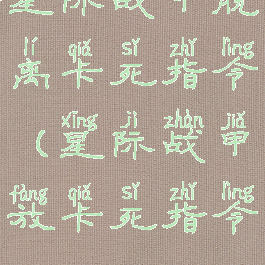 星际战甲脱
lí qiǎ sǐ zhǐ lìng
离卡死指令
xīng jì zhàn jiǎ
（星际战甲
fàng qiǎ sǐ zhǐ lìng
放卡死指令